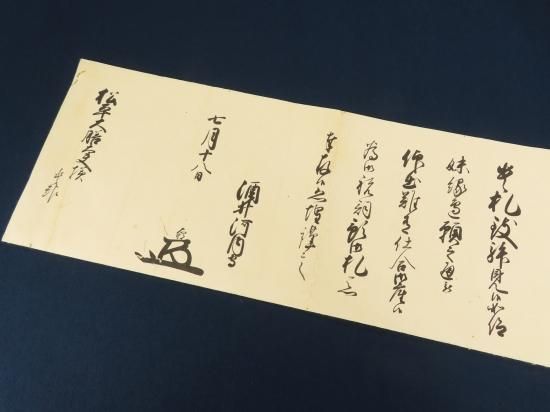 貴札致拝見候如仰
妹縁辺願之通被
仰出難有仕合御座候
為御祝詞預御札忝
幸存候恐惶謹言
酒井河内守
七月十八日
松平大膳大夫様
貴報